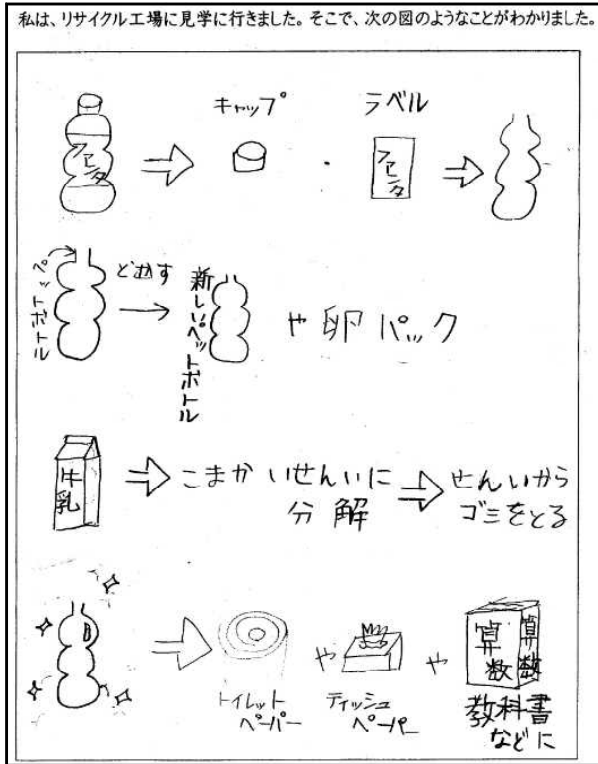 私は、リサイクル工場に見学に行きました。そこで、次の図のようなことがわかりました。
キャップ
ラベル
ファンタ
・
ファンタ
ペットボトル
新しいペットボトル
や卵パック
牛乳
こまかいせんいに
分解
せんいから
ゴミをとる
トイレット
ペーパー
や
ティッシュ
ペーパー
や
算数
算数
教科書
などに